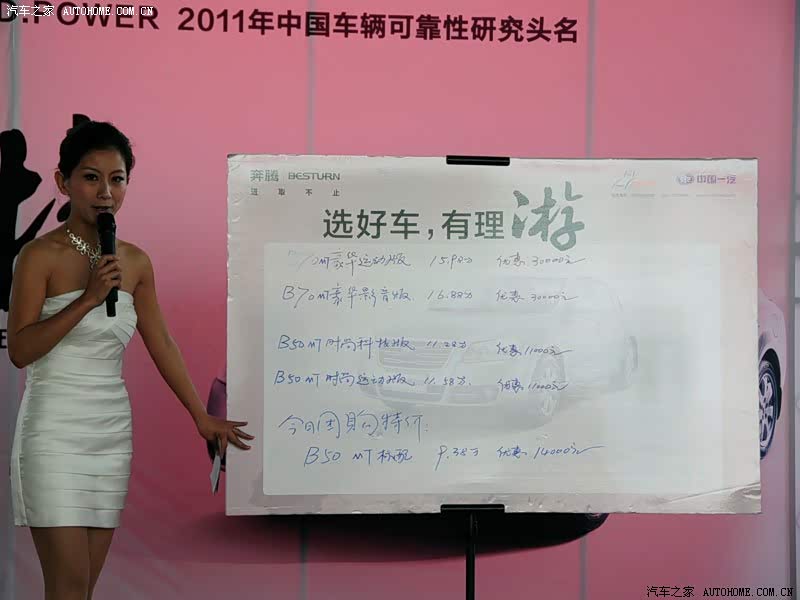 汽车之家 AUTOHOME.COM.CN
POWER 2011年中国车辆可靠性研究头名
奔腾 BESTURN
进取不止
中国一汽
选好车,有理游
70MT豪华运动版 15.98万 优惠30000元
B70MT豪华影音版 16.88万 优惠30000元
B50MT时尚科技版 11.28万 优惠11000元
B50MT时尚运动版 11.58万 优惠11000元
今日团购特价:
B50 MT标配 9.38万 优惠14000元
汽车之家 AUTOHOME.COM.CN